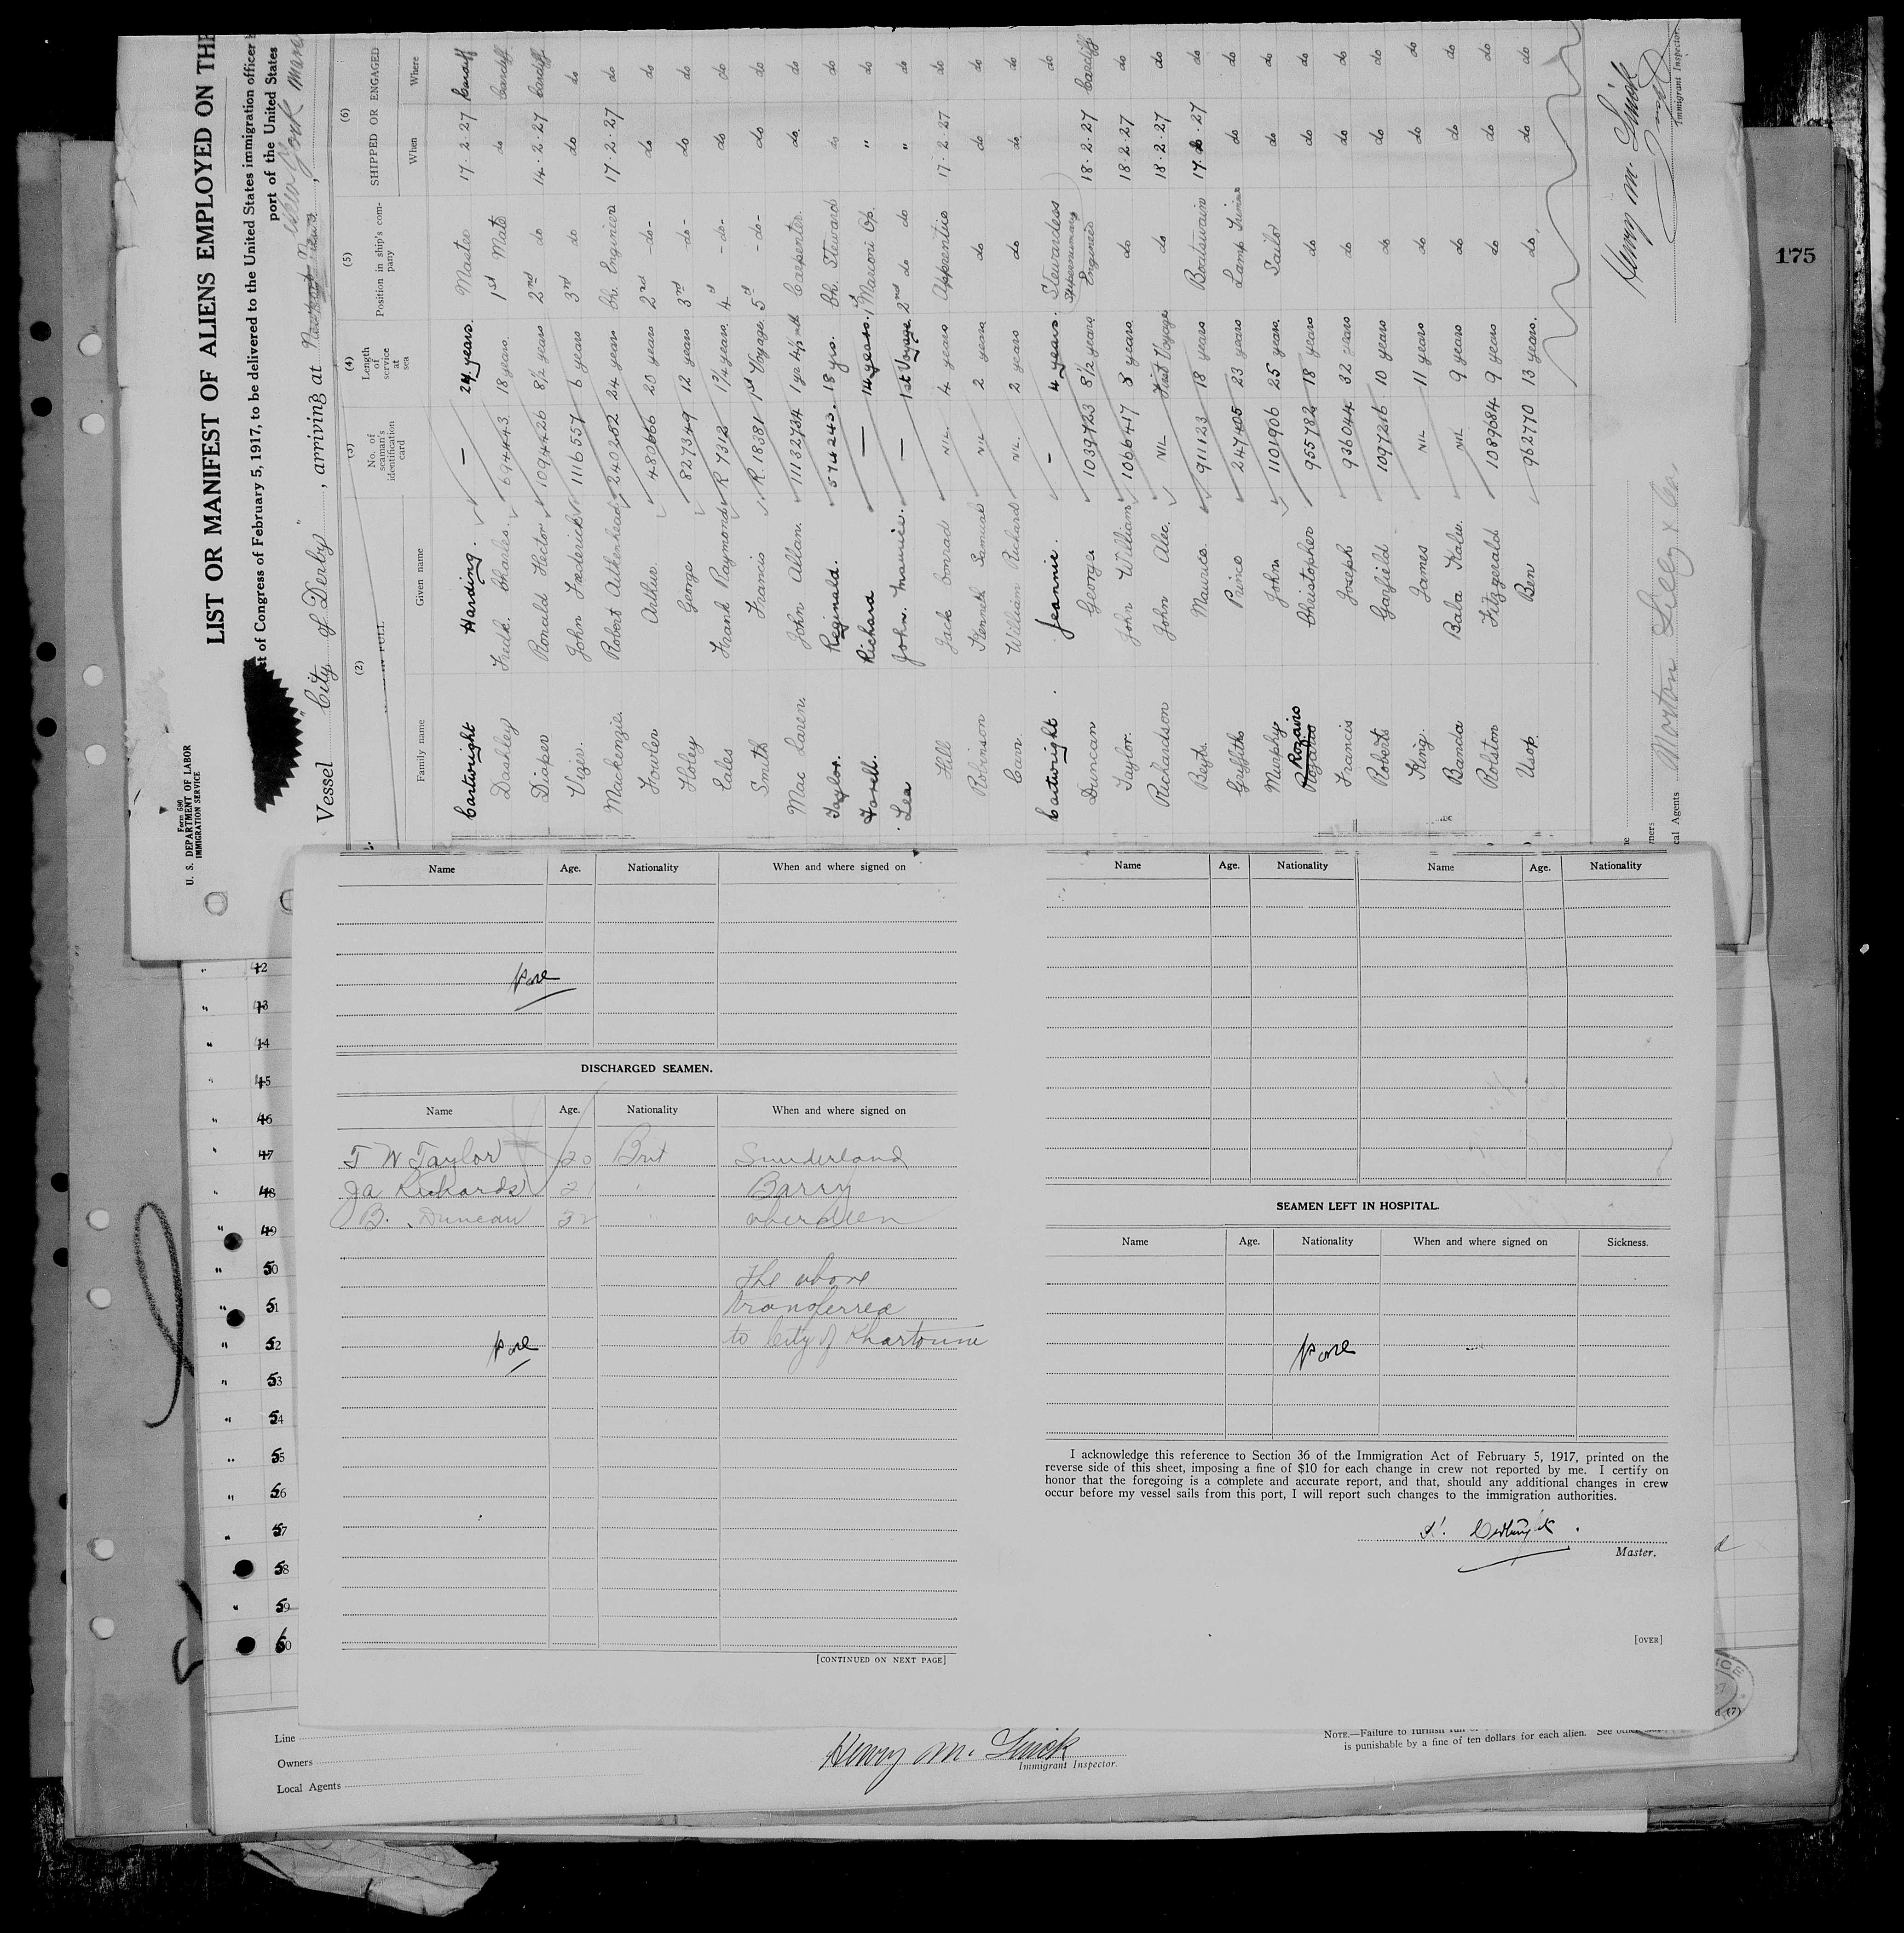 175
Form 680
U. S. DEPARTMENT OF LABOR
IMMIGRATION SERVICE
LIST OR MANIFEST OF ALIENS EMPLOYED ON THE
st of Congress of February 5, 1917, to be delivered to the United States immigration officer
port of the United States
Vessel "City of Derby", arriving at New York
(2) (3) (4) (5) (6)
Family name Given name No. of seaman's identification card Length of service at sea Position in ship's company SHIPPED OR ENGAGED When Where
Cartwright Harding. — 24 years. Master 17.2.27 Cardiff
Dashley Fredk. Charles. 694443 18 years. 1st Mate do Cardiff
Diaper Ronald Hector 1094426 8½ years 2nd do 14.2.27 Cardiff
Vizer. John Frederick 1116557 6 years 3rd do do do
Mackenzie. Robert Aitkenhead 240282 24 years Ch. Engineer 17.2.27 do
Fowler Arthur. 480666 20 years 2nd -do- do do
Holey George 827349 12 years 3rd -do- do do
Eales Frank Raymond R 7312 1¾ years 4th -do- do do
Smith Francis R. 18381 1st Voyage 5th -do- do do
Mac Laren. John Allan. 11132734 1yr 4½ mth Carpenter. do. do
Taylor. Reginald. 574243. 18 yrs. Ch. Steward do do
Farell. Richard — 14 years. 1st Marconi Op. " do
Lea John. Maurice. — 1st Voyage 2nd do do " do
Hill Jack Conrad NIL. 4 years Apprentice 17.2.27 do
Robinson Kenneth Samuel NIL 2 years do do do
Carr William Richard NIL. 2 years do do do
Cartwright. Jeannie. — 4 years. Stewardess do
Duncan George 1039723 8½ years Supernumary Engineer 18.2.27 Cardiff
Taylor. John William 1066417 8 years. do 18.2.27 do
Richardson John Alec. NIL First Voyage do 18.2.27 do
Maurice 911123 18 years Boatswain 17.2.27 do
Griffiths Prince 247405 23 years Lamp Trimmer do do
Murphy John 1101906 25 years. Sailor do do
Rozario Christopher 955782 18 years do do do
Francis Joseph 936044 32 years do do do
Roberts Garfield 1097216 10 years do do do
King. James NIL 11 years do do do
Banda Baba Kalu. NIL 9 years do do do
Rolston Fitzgerald 1089684 9 years do do do
Usop. Ben 962770 13 years. do. do do
Henry M.
Immigrant Inspector
cal Agents
Name Age. Nationality When and where signed on
None
DISCHARGED SEAMEN.
Name Age. Nationality When and where signed on
T W Taylor 20 Brit Sunderland
Ja Richards 21 " Barry
B. Duncan 32 " Aberdeen
The above
transferred
to City of Khartoum
None
[CONTINUED ON NEXT PAGE]
Name Age. Nationality Name Age. Nationality
SEAMEN LEFT IN HOSPITAL.
Name Age. Nationality When and where signed on Sickness.
None
I acknowledge this reference to Section 36 of the Immigration Act of February 5, 1917, printed on the
reverse side of this sheet, imposing a fine of $10 for each change in crew not reported by me. I certify on
honor that the foregoing is a complete and accurate report, and that, should any additional changes in crew
occur before my vessel sails from this port, I will report such changes to the immigration authorities.
H. Cartwright.
Master.
[OVER]
42
43
44
45
46
47
48
49
50
51
52
53
54
55
56
57
58
59
60
Line
Owners
Local Agents
Henry M.
Immigrant Inspector.
NOTE.—Failure to furnish
is punishable by a fine of ten dollars for each alien. See